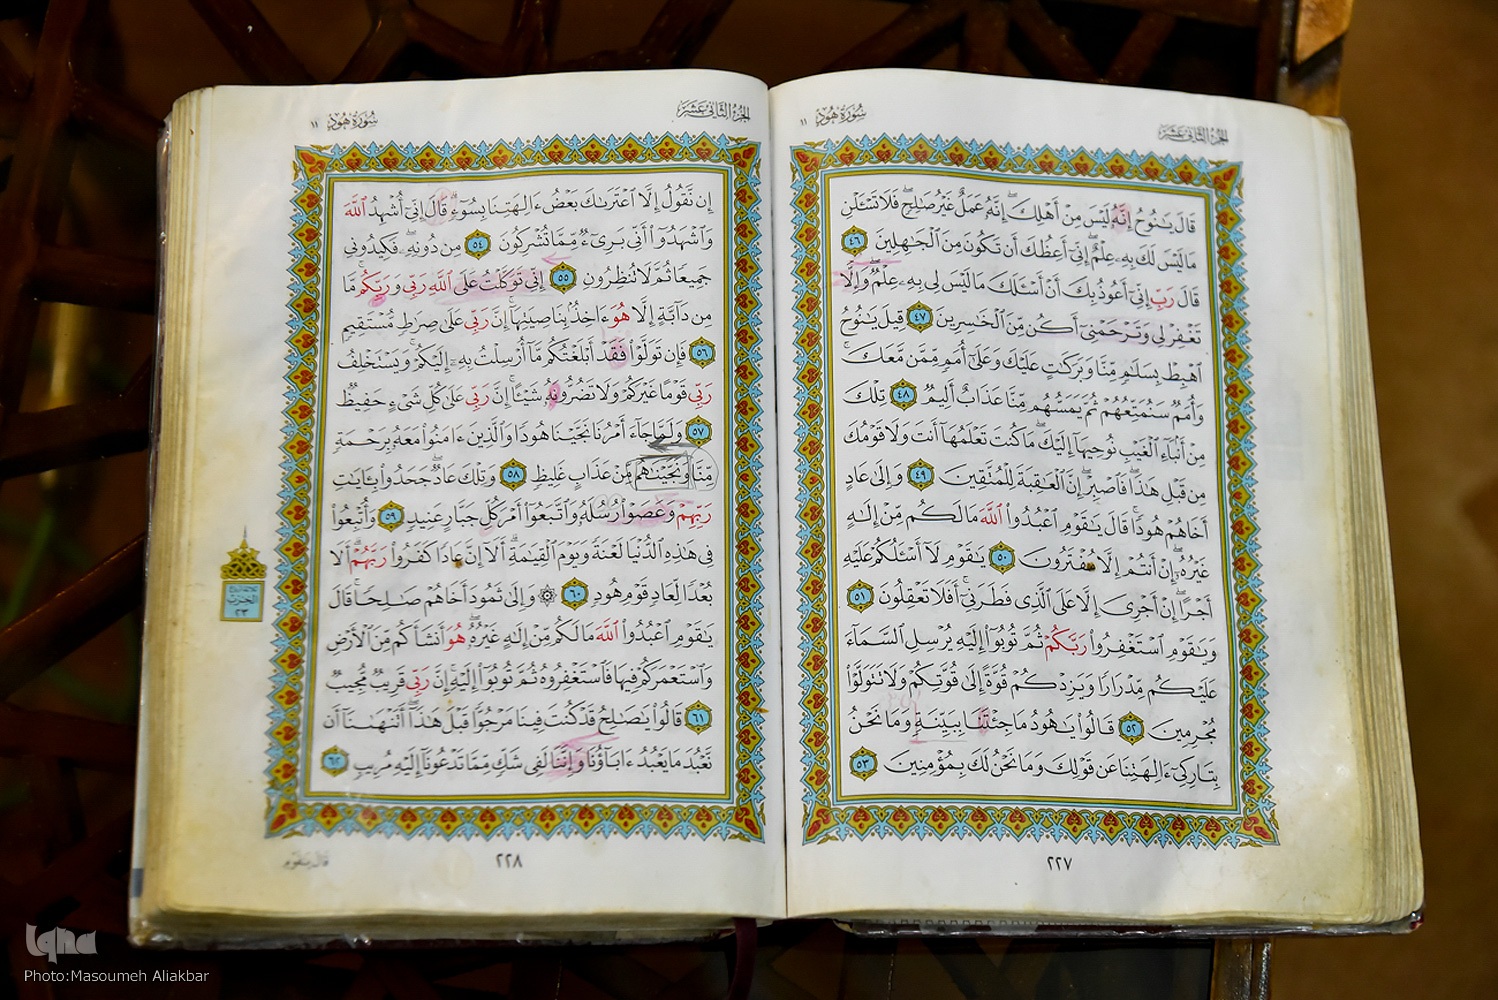 الجزء الثاني عشر
سُورَةُ هُودٍ
١١
قَالَ يَٰنُوحُ إِنَّهُۥ لَيْسَ مِنْ أَهْلِكَ ۖ إِنَّهُۥ عَمَلٌ غَيْرُ صَٰلِحٍ ۖ فَلَا تَسْـَٔلْنِ
مَا لَيْسَ لَكَ بِهِۦ عِلْمٌ ۖ إِنِّىٓ أَعِظُكَ أَن تَكُونَ مِنَ ٱلْجَٰهِلِينَ ٤٦
قَالَ رَبِّ إِنِّىٓ أَعُوذُ بِكَ أَنْ أَسْـَٔلَكَ مَا لَيْسَ لِى بِهِۦ عِلْمٌ ۖ وَإِلَّا
تَغْفِرْ لِى وَتَرْحَمْنِىٓ أَكُن مِّنَ ٱلْخَٰسِرِينَ ٤٧ قِيلَ يَٰنُوحُ
ٱهْبِطْ بِسَلَٰمٍ مِّنَّا وَبَرَكَٰتٍ عَلَيْكَ وَعَلَىٰٓ أُمَمٍ مِّمَّن مَّعَكَ ۚ
وَأُمَمٌ سَنُمَتِّعُهُمْ ثُمَّ يَمَسُّهُم مِّنَّا عَذَابٌ أَلِيمٌ ٤٨ تِلْكَ
مِنْ أَنۢبَآءِ ٱلْغَيْبِ نُوحِيهَآ إِلَيْكَ ۖ مَا كُنتَ تَعْلَمُهَآ أَنتَ وَلَا قَوْمُكَ
مِن قَبْلِ هَٰذَا ۖ فَٱصْبِرْ ۖ إِنَّ ٱلْعَٰقِبَةَ لِلْمُتَّقِينَ ٤٩ وَإِلَىٰ عَادٍ
أَخَاهُمْ هُودًا ۚ قَالَ يَٰقَوْمِ ٱعْبُدُوا۟ ٱللَّهَ مَا لَكُم مِّنْ إِلَٰهٍ
غَيْرُهُۥٓ ۖ إِنْ أَنتُمْ إِلَّا مُفْتَرُونَ ٥٠ يَٰقَوْمِ لَآ أَسْـَٔلُكُمْ عَلَيْهِ
أَجْرًا ۖ إِنْ أَجْرِىَ إِلَّا عَلَى ٱلَّذِى فَطَرَنِىٓ ۚ أَفَلَا تَعْقِلُونَ ٥١
وَيَٰقَوْمِ ٱسْتَغْفِرُوا۟ رَبَّكُمْ ثُمَّ تُوبُوٓا۟ إِلَيْهِ يُرْسِلِ ٱلسَّمَآءَ
عَلَيْكُم مِّدْرَارًا وَيَزِدْكُمْ قُوَّةً إِلَىٰ قُوَّتِكُمْ وَلَا تَتَوَلَّوْا۟
مُجْرِمِينَ ٥٢ قَالُوا۟ يَٰهُودُ مَا جِئْتَنَا بِبَيِّنَةٍ وَمَا نَحْنُ
بِتَارِكِىٓ ءَالِهَتِنَا عَن قَوْلِكَ وَمَا نَحْنُ لَكَ بِمُؤْمِنِينَ ٥٣
٢٢٧
الجزء الثاني عشر
سُورَةُ هُودٍ
١١
إِن نَّقُولُ إِلَّا ٱعْتَرَىٰكَ بَعْضُ ءَالِهَتِنَا بِسُوٓءٍ ۗ قَالَ إِنِّىٓ أُشْهِدُ ٱللَّهَ
وَٱشْهَدُوٓا۟ أَنِّى بَرِىٓءٌ مِّمَّا تُشْرِكُونَ ٥٤ مِن دُونِهِۦ ۖ فَكِيدُونِى
جَمِيعًا ثُمَّ لَا تُنظِرُونِ ٥٥ إِنِّى تَوَكَّلْتُ عَلَى ٱللَّهِ رَبِّى وَرَبِّكُم ۚ مَّا
مِن دَآبَّةٍ إِلَّا هُوَ ءَاخِذٌۢ بِنَاصِيَتِهَآ ۚ إِنَّ رَبِّى عَلَىٰ صِرَٰطٍ مُّسْتَقِيمٍ
٥٦ فَإِن تَوَلَّوْا۟ فَقَدْ أَبْلَغْتُكُم مَّآ أُرْسِلْتُ بِهِۦٓ إِلَيْكُمْ ۚ وَيَسْتَخْلِفُ
رَبِّى قَوْمًا غَيْرَكُمْ وَلَا تَضُرُّونَهُۥ شَيْـًٔا ۚ إِنَّ رَبِّى عَلَىٰ كُلِّ شَىْءٍ حَفِيظٌ
٥٧ وَلَمَّا جَآءَ أَمْرُنَا نَجَّيْنَا هُودًا وَٱلَّذِينَ ءَامَنُوا۟ مَعَهُۥ بِرَحْمَةٍ
مِّنَّا وَنَجَّيْنَٰهُم مِّنْ عَذَابٍ غَلِيظٍ ٥٨ وَتِلْكَ عَادٌ ۖ جَحَدُوا۟ بِـَٔايَٰتِ
رَبِّهِمْ وَعَصَوْا۟ رُسُلَهُۥ وَٱتَّبَعُوٓا۟ أَمْرَ كُلِّ جَبَّارٍ عَنِيدٍ ٥٩ وَأُتْبِعُوا۟
فِى هَٰذِهِ ٱلدُّنْيَا لَعْنَةً وَيَوْمَ ٱلْقِيَٰمَةِ ۗ أَلَآ إِنَّ عَادًا كَفَرُوا۟ رَبَّهُمْ ۗ أَلَا
بُعْدًا لِّعَادٍ قَوْمِ هُودٍ ٦٠ ۞ وَإِلَىٰ ثَمُودَ أَخَاهُمْ صَٰلِحًا ۚ قَالَ
يَٰقَوْمِ ٱعْبُدُوا۟ ٱللَّهَ مَا لَكُم مِّنْ إِلَٰهٍ غَيْرُهُۥ ۖ هُوَ أَنشَأَكُم مِّنَ ٱلْأَرْضِ
وَٱسْتَعْمَرَكُمْ فِيهَا فَٱسْتَغْفِرُوهُ ثُمَّ تُوبُوٓا۟ إِلَيْهِ ۚ إِنَّ رَبِّى قَرِيبٌ مُّجِيبٌ
٦١ قَالُوا۟ يَٰصَٰلِحُ قَدْ كُنتَ فِينَا مَرْجُوًّا قَبْلَ هَٰذَآ ۖ أَتَنْهَىٰنَآ أَن
نَّعْبُدَ مَا يَعْبُدُ ءَابَآؤُنَا وَإِنَّنَا لَفِى شَكٍّ مِّمَّا تَدْعُونَآ إِلَيْهِ مُرِيبٍ ٦٢
الحزب
٢٣
٢٢٨
قَالَ يَٰقَوْمِ
Iqna
Photo:Masoumeh Aliakbar